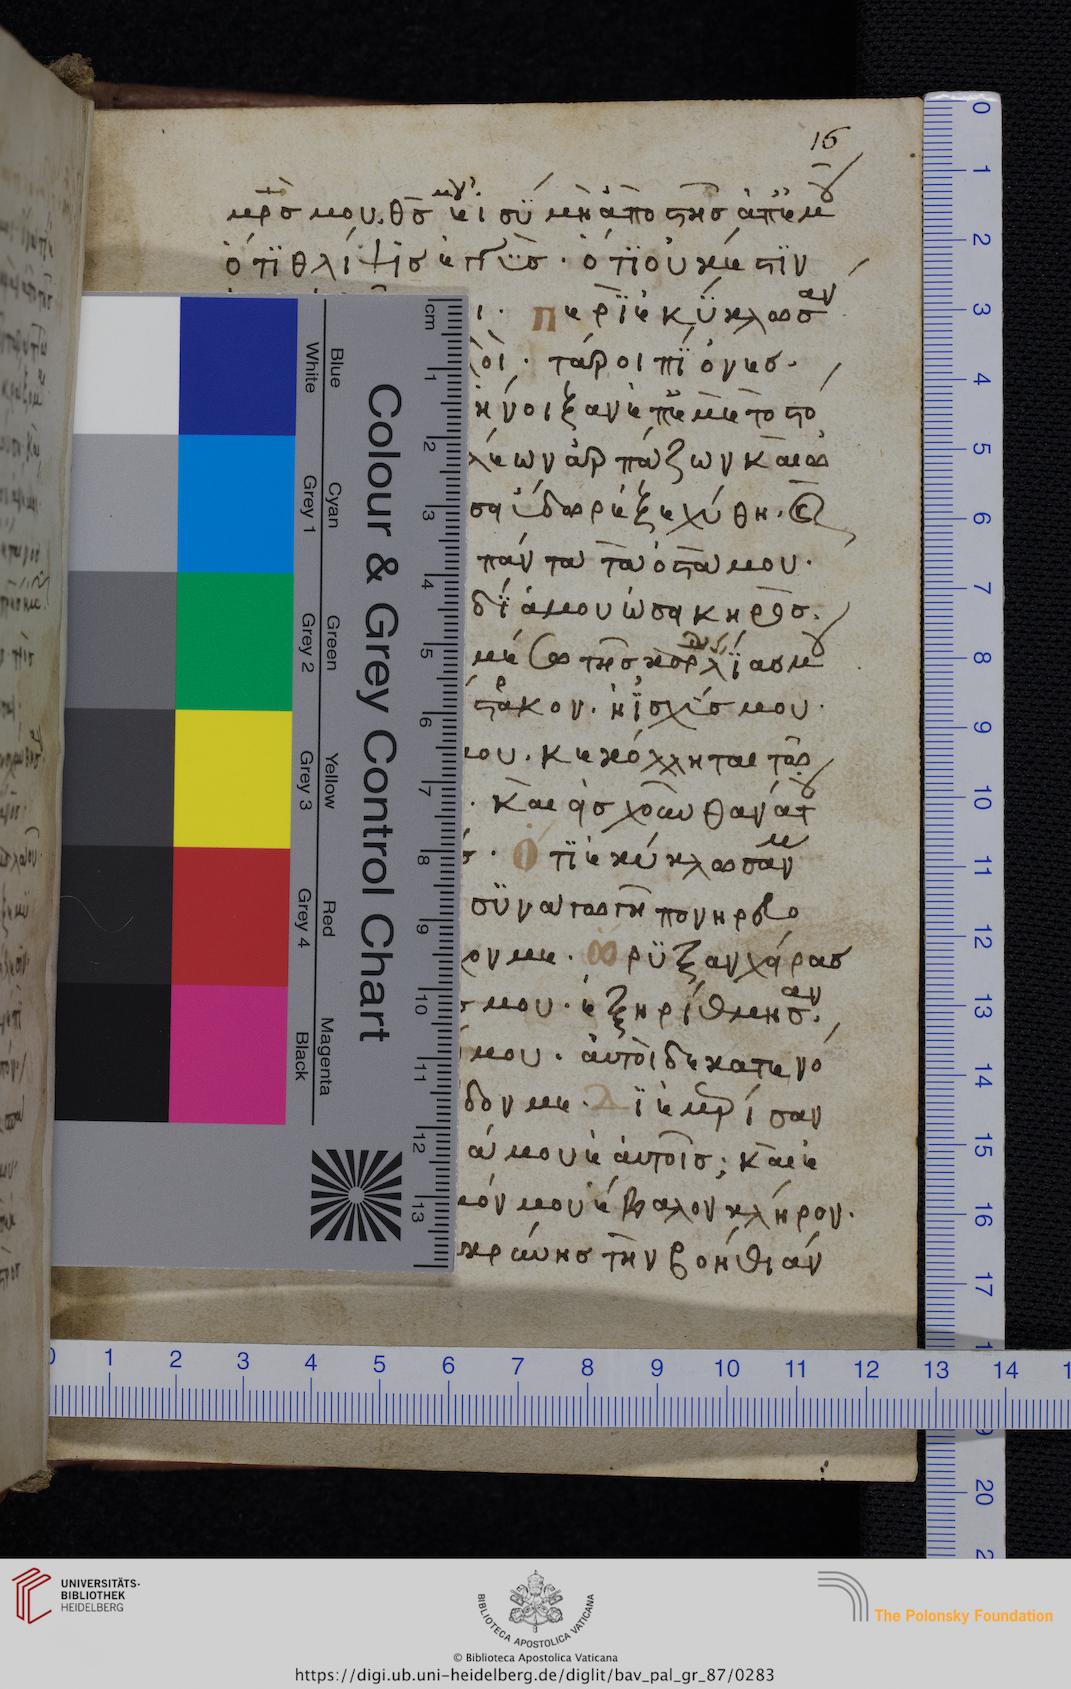 16
μρσ μου. θσ μου εἶ σὺ μὴ ἀποστῆσ ἀπ ἐμοῦ
ὅτι θλίψισ ἐγγὺσ. ὅτι οὐκ ἔστιν
ι. Περιεκύκλωσαν
οὶ. ταῦροι πίονεσ.
ἤνοιξαν ἐπ ἐμὲ τὸ στό
λέων ἁρπάζων καὶ ὠ
σεὶ ὕδωρ ἐξεχύθη.
πάντα τὰ ὀστᾶ μου.
δία μου ὡσεὶ κηρὸσ.
μέσω τῆσ κοιλίασ μου
στρακον. ἡ ἰσχύσ μου.
μου. κεκόλληται τῶ
. καὶ εἰσ χοῦν θανάτου
Ὅτι ἐκύκλωσάν με
συναγωγὴ πονηρευο
ον με. Ὤρυξαν χεῖρασ
μου. ἐξηρίθμησαν.
μου. αὐτοὶ δὲ κατενό
δόν με. Διεμερίσαν
ά μου ἑαυτοῖσ; καὶ ἐ
μόν μου ἔβαλον κλῆρον.
μακρύνησ τὴν βοήθειάν
Colour & Grey Control Chart
Blue
Cyan
Green
Yellow
Red
Magenta
White
Grey 1
Grey 2
Grey 3
Grey 4
Black
cm 1 2 3 4 5 6 7 8 9 10 11 12 13
0 1 2 3 4 5 6 7 8 9 10 11 12 13 14 15 16 17
20
0 1 2 3 4 5 6 7 8 9 10 11 12 13 14
UNIVERSITÄTS-
BIBLIOTHEK
HEIDELBERG
BIBLIOTECA APOSTOLICA VATICANA
The Polonsky Foundation
© Biblioteca Apostolica Vaticana
https://digi.ub.uni-heidelberg.de/diglit/bav_pal_gr_87/0283